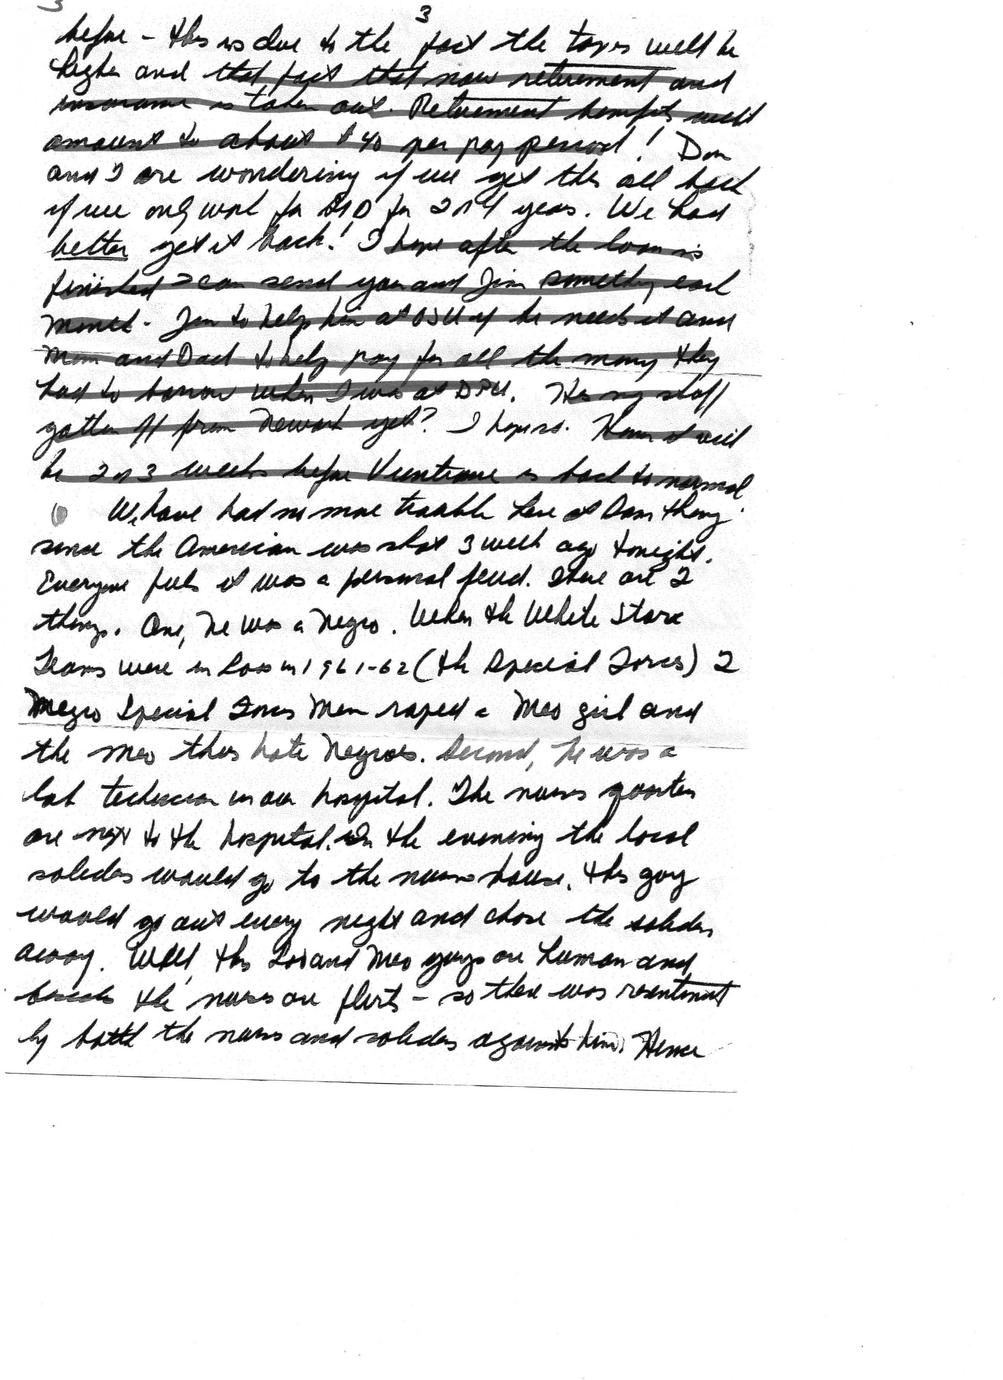 3
3
before - this is due to the fact the taxes will be
higher and that fact that now retirement and
insurance is taken out. Retirement benefits will
amount to about $40 per pay period! Don
and I are wondering if we get this all back
if we only work for AID for 2 or 4 years. We had
better get it back! I hope after the loan is
finished I can send you and Jim something each
month - Jim to help him at OSU if he needs it and
Mom and Dad to help pay for all the money they
had to borrow when I was at DPU. Has my stuff
gotten off from Newark yet? I hope so. it will
be 2 or 3 weeks before Vientiane is back to normal
We have had no more trouble here at Sam Thong
since the American was shot 3 week ago tonight.
Everyone feels it was a personal feud. There are 2
things. One, he was a Negro. When the White Stare
Teams were in Laos in 1961-62 (the Special Forces) 2
Negro Special Forces Men raped a Meo girl and
the Meo thus hate Negroes. Second, he was a
lab technician in our hospital. The nurses quarters
are next to the hospital. In the evening the local
soliders would go to the nurses house, this guy
would go out every night and chase the soliders
away. Well, the Lao and Meo guys are human and
besides the nurses are flirts - so there was resentment
by both the nurses and soliders against him. Hence